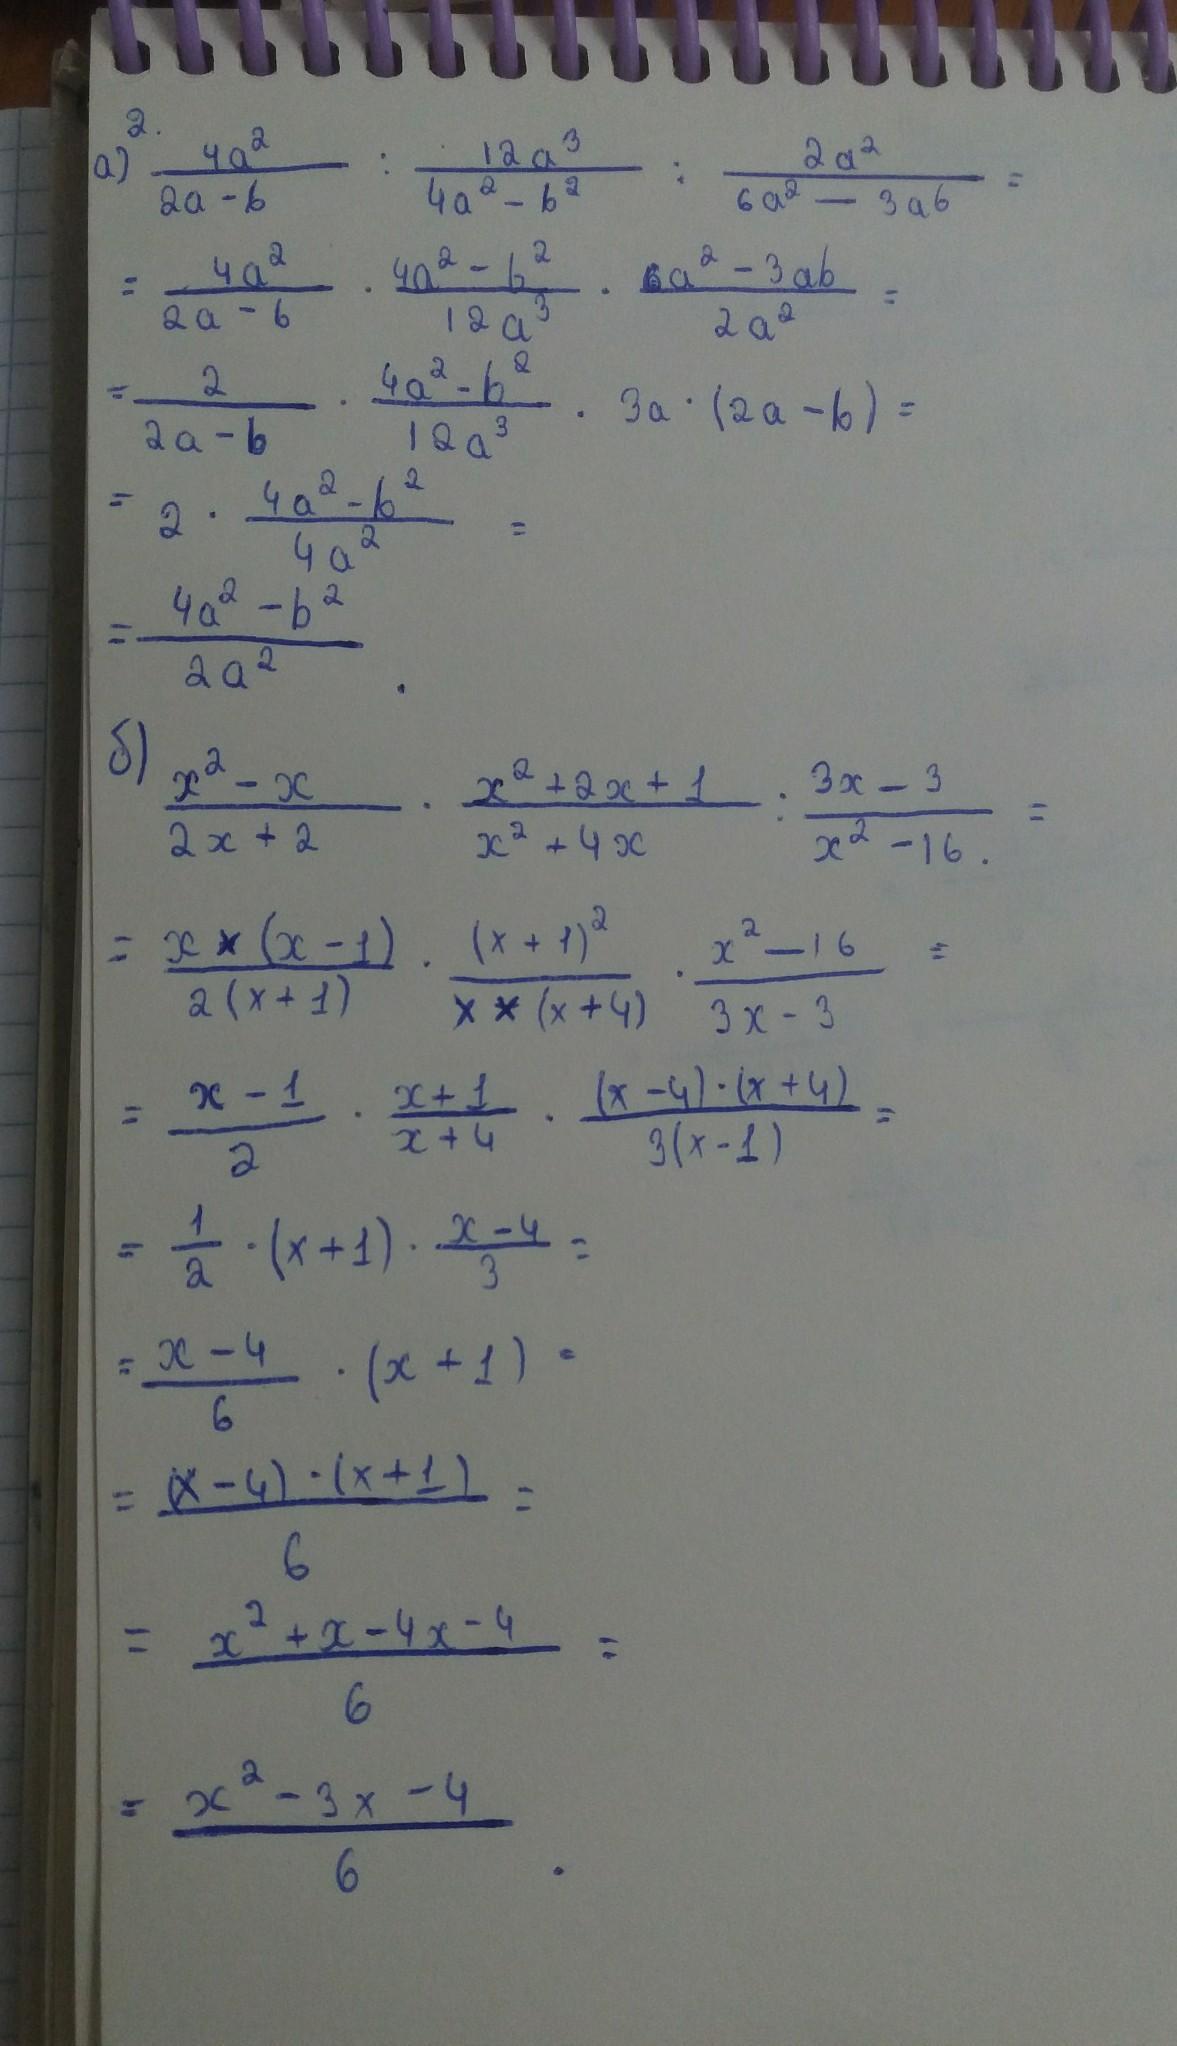 2.
а) 4a² / (2a - b) : 12a³ / (4a² - b²) : 2a² / (6a² - 3ab) =
= 4a² / (2a - b) · (4a² - b²) / 12a³ · (6a² - 3ab) / 2a² =
= 2 / (2a - b) · (4a² - b²) / 12a³ · 3a · (2a - b) =
= 2 · (4a² - b²) / 4a² =
= (4a² - b²) / 2a² .
б) (x² - x) / (2x + 2) · (x² + 2x + 1) / (x² + 4x) : (3x - 3) / (x² - 16) . =
= x * (x - 1) / 2(x + 1) · (x + 1)² / x * (x + 4) · (x² - 16) / (3x - 3) =
= (x - 1) / 2 · (x + 1) / (x + 4) · (x - 4) · (x + 4) / 3(x - 1) =
= 1 / 2 · (x + 1) · (x - 4) / 3 =
= (x - 4) / 6 · (x + 1) =
= (x - 4) · (x + 1) / 6 =
= (x² + x - 4x - 4) / 6 =
= (x² - 3x - 4) / 6 .